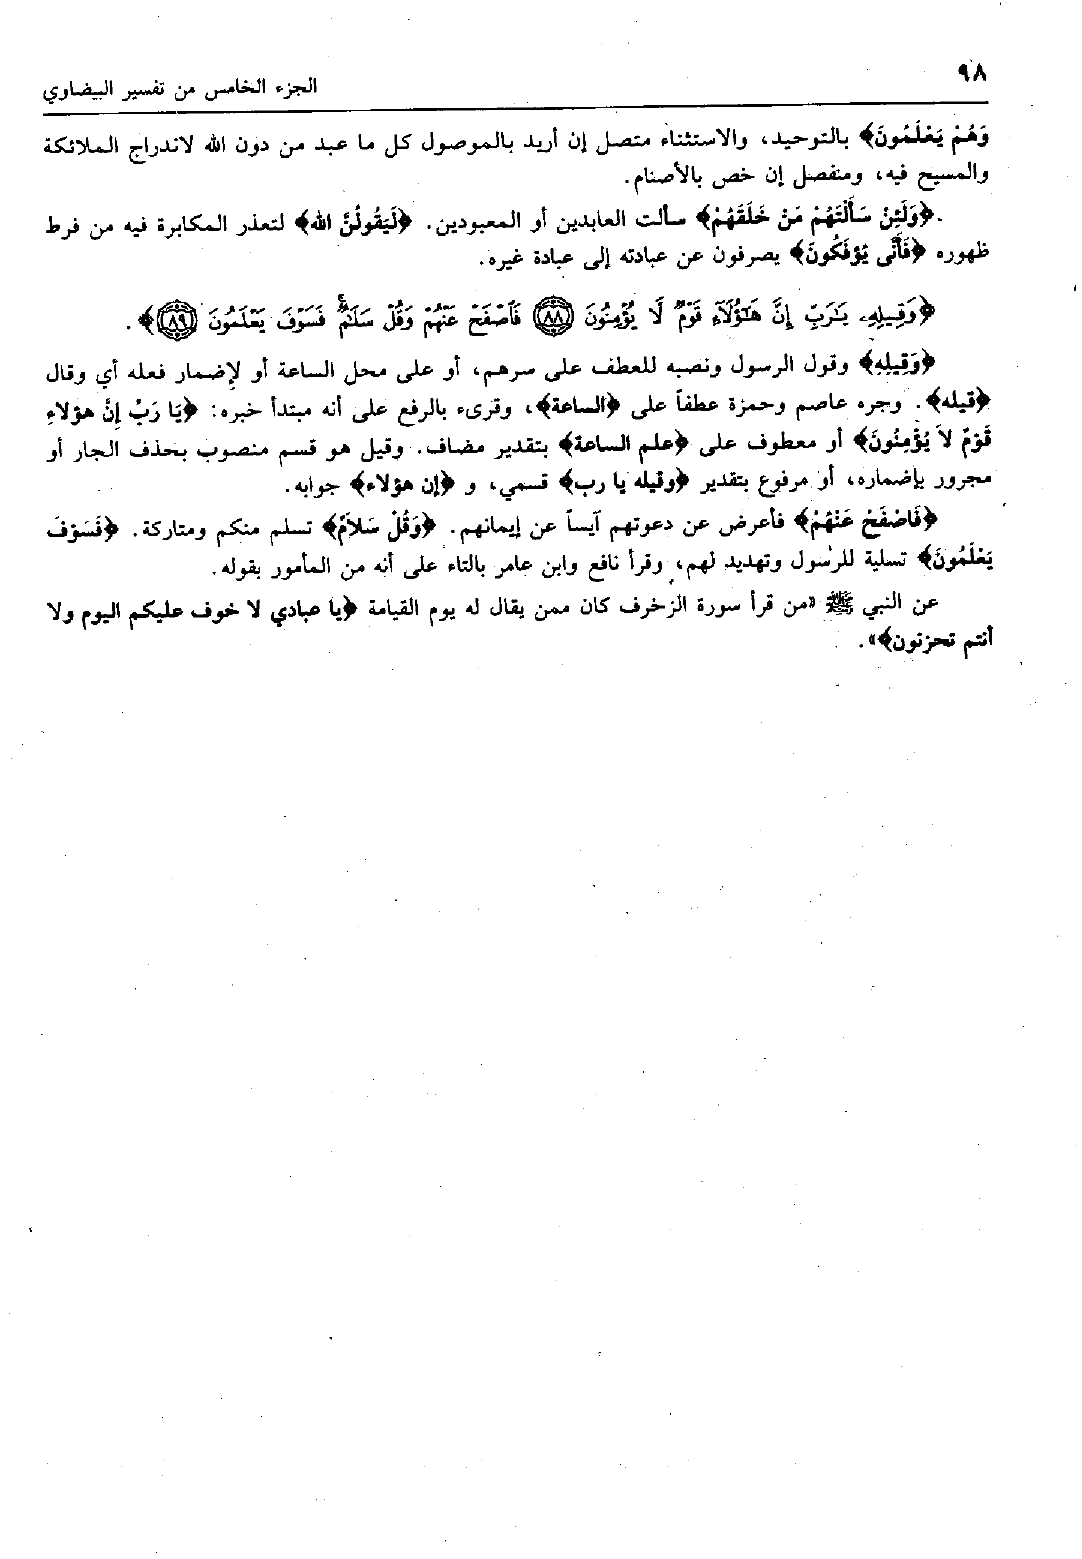 ٩٨
الجزء الخامس من تفسير البيضاوي
وَهُمْ يَعْلَمُونَ﴾ بالتوحيد، والاستثناء متصل إن أريد بالموصول كل ما عبد من دون الله لاندراج الملائكة
والمسيح فيه، ومنفصل إن خص بالأصنام.
﴿وَلَئِنْ سَأَلْتَهُمْ مَنْ خَلَقَهُمْ﴾ سألت العابدين أو المعبودين. ﴿لَيَقُولُنَّ الله﴾ لتعذر المكابرة فيه من فرط
ظهوره ﴿فَأَنَّى يُؤفَكُونَ﴾ يصرفون عن عبادته إلى عبادة غيره.
﴿وَقِيلِهِۦ يَٰرَبِّ إِنَّ هَٰٓؤُلَآءِ قَوْمٌ لَّا يُؤْمِنُونَ ﴿٨٨﴾ فَٱصْفَحْ عَنْهُمْ وَقُلْ سَلَٰمٌ ۚ فَسَوْفَ يَعْلَمُونَ ﴿٨٩﴾﴾.
﴿وَقِيلِهِ﴾ وقول الرسول ونصبه للعطف على سرهم، أو على محل الساعة أو لإضمار فعله أي وقال
﴿قيله﴾. وجره عاصم وحمزة عطفاً على ﴿الساعة﴾، وقرىء بالرفع على أنه مبتدأ خبره: ﴿يَا رَبِّ إِنَّ هؤلاءِ
قَوْمٌ لاَ يُؤْمِنُونَ﴾ أو معطوف على ﴿علم الساعة﴾ بتقدير مضاف. وقيل هو قسم منصوب بحذف الجار أو
مجرور بإضماره، أو مرفوع بتقدير ﴿وقيله يا رب﴾ قسمي، و ﴿إن هؤلاء﴾ جوابه.
﴿فَاصْفَحْ عَنْهُمْ﴾ فأعرض عن دعوتهم آيساً عن إيمانهم. ﴿وَقُلْ سَلاَمٌ﴾ تسلم منكم ومتاركة. ﴿فَسَوْفَ
يَعْلَمُونَ﴾ تسلية للرسول وتهديد لهم، وقرأ نافع وابن عامر بالتاء على أنه من المأمور بقوله.
عن النبي ﷺ «من قرأ سورة الزخرف كان ممن يقال له يوم القيامة ﴿يا عبادي لا خوف عليكم اليوم ولا
أنتم تحزنون﴾».